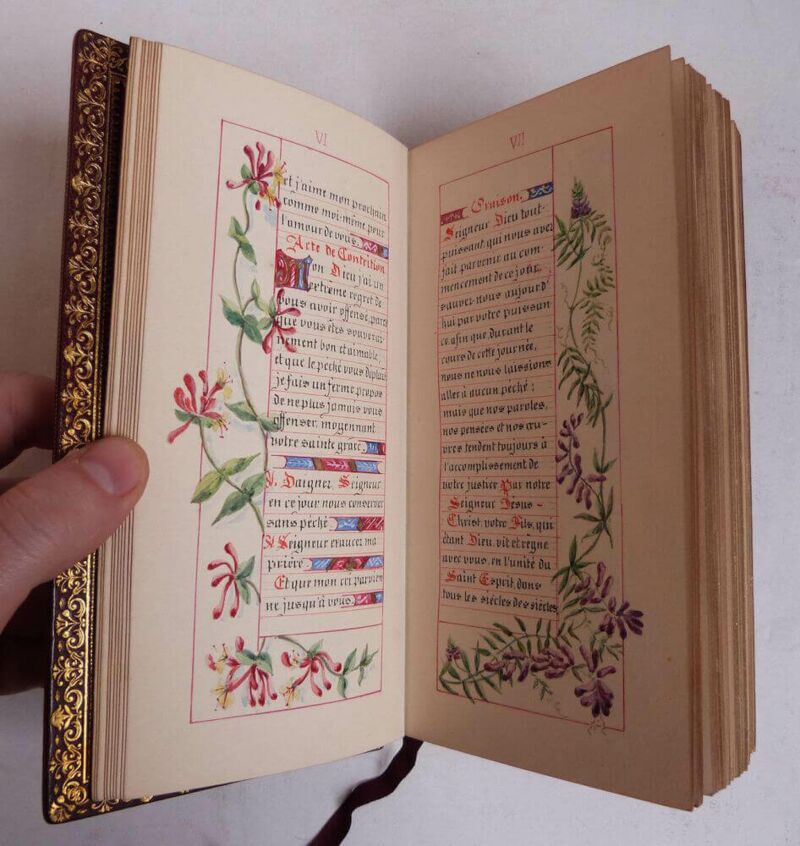 VI
et j'aime mon prochain
comme moi-même pour
l'amour de vous.
Acte de Contrition
Mon Dieu j'ai un
extrême regret de
vous avoir offensé, parce
que vous êtes souverai-
nement bon et aimable,
et que le péché vous déplait
je fais un ferme propos
de ne plus jamais vous
offenser, moyennant
votre sainte grâce.
V. Daignez, Seigneur
en ce jour nous conserver
sans péché
R. Seigneur exaucez ma
prière.
Et que mon cri parvien
ne jusqu'à vous.
VII
Oraison.
Seigneur Dieu tout-
puissant qui nous avez
fait parvenir au com-
mencement de ce jour,
sauvez-nous aujourd'
hui par votre puissan
ce afin que durant le
cours de cette journée,
nous ne nous laissions
aller à aucun péché ;
mais que nos paroles,
nos pensées et nos œu-
vres tendent toujours à
l'accomplissement de
votre justice Par notre
Seigneur Jésus-
Christ votre Fils, qui
étant Dieu, vit et règne
avec vous, en l'unité du
Saint Esprit, dans
tous les siècles des siècles